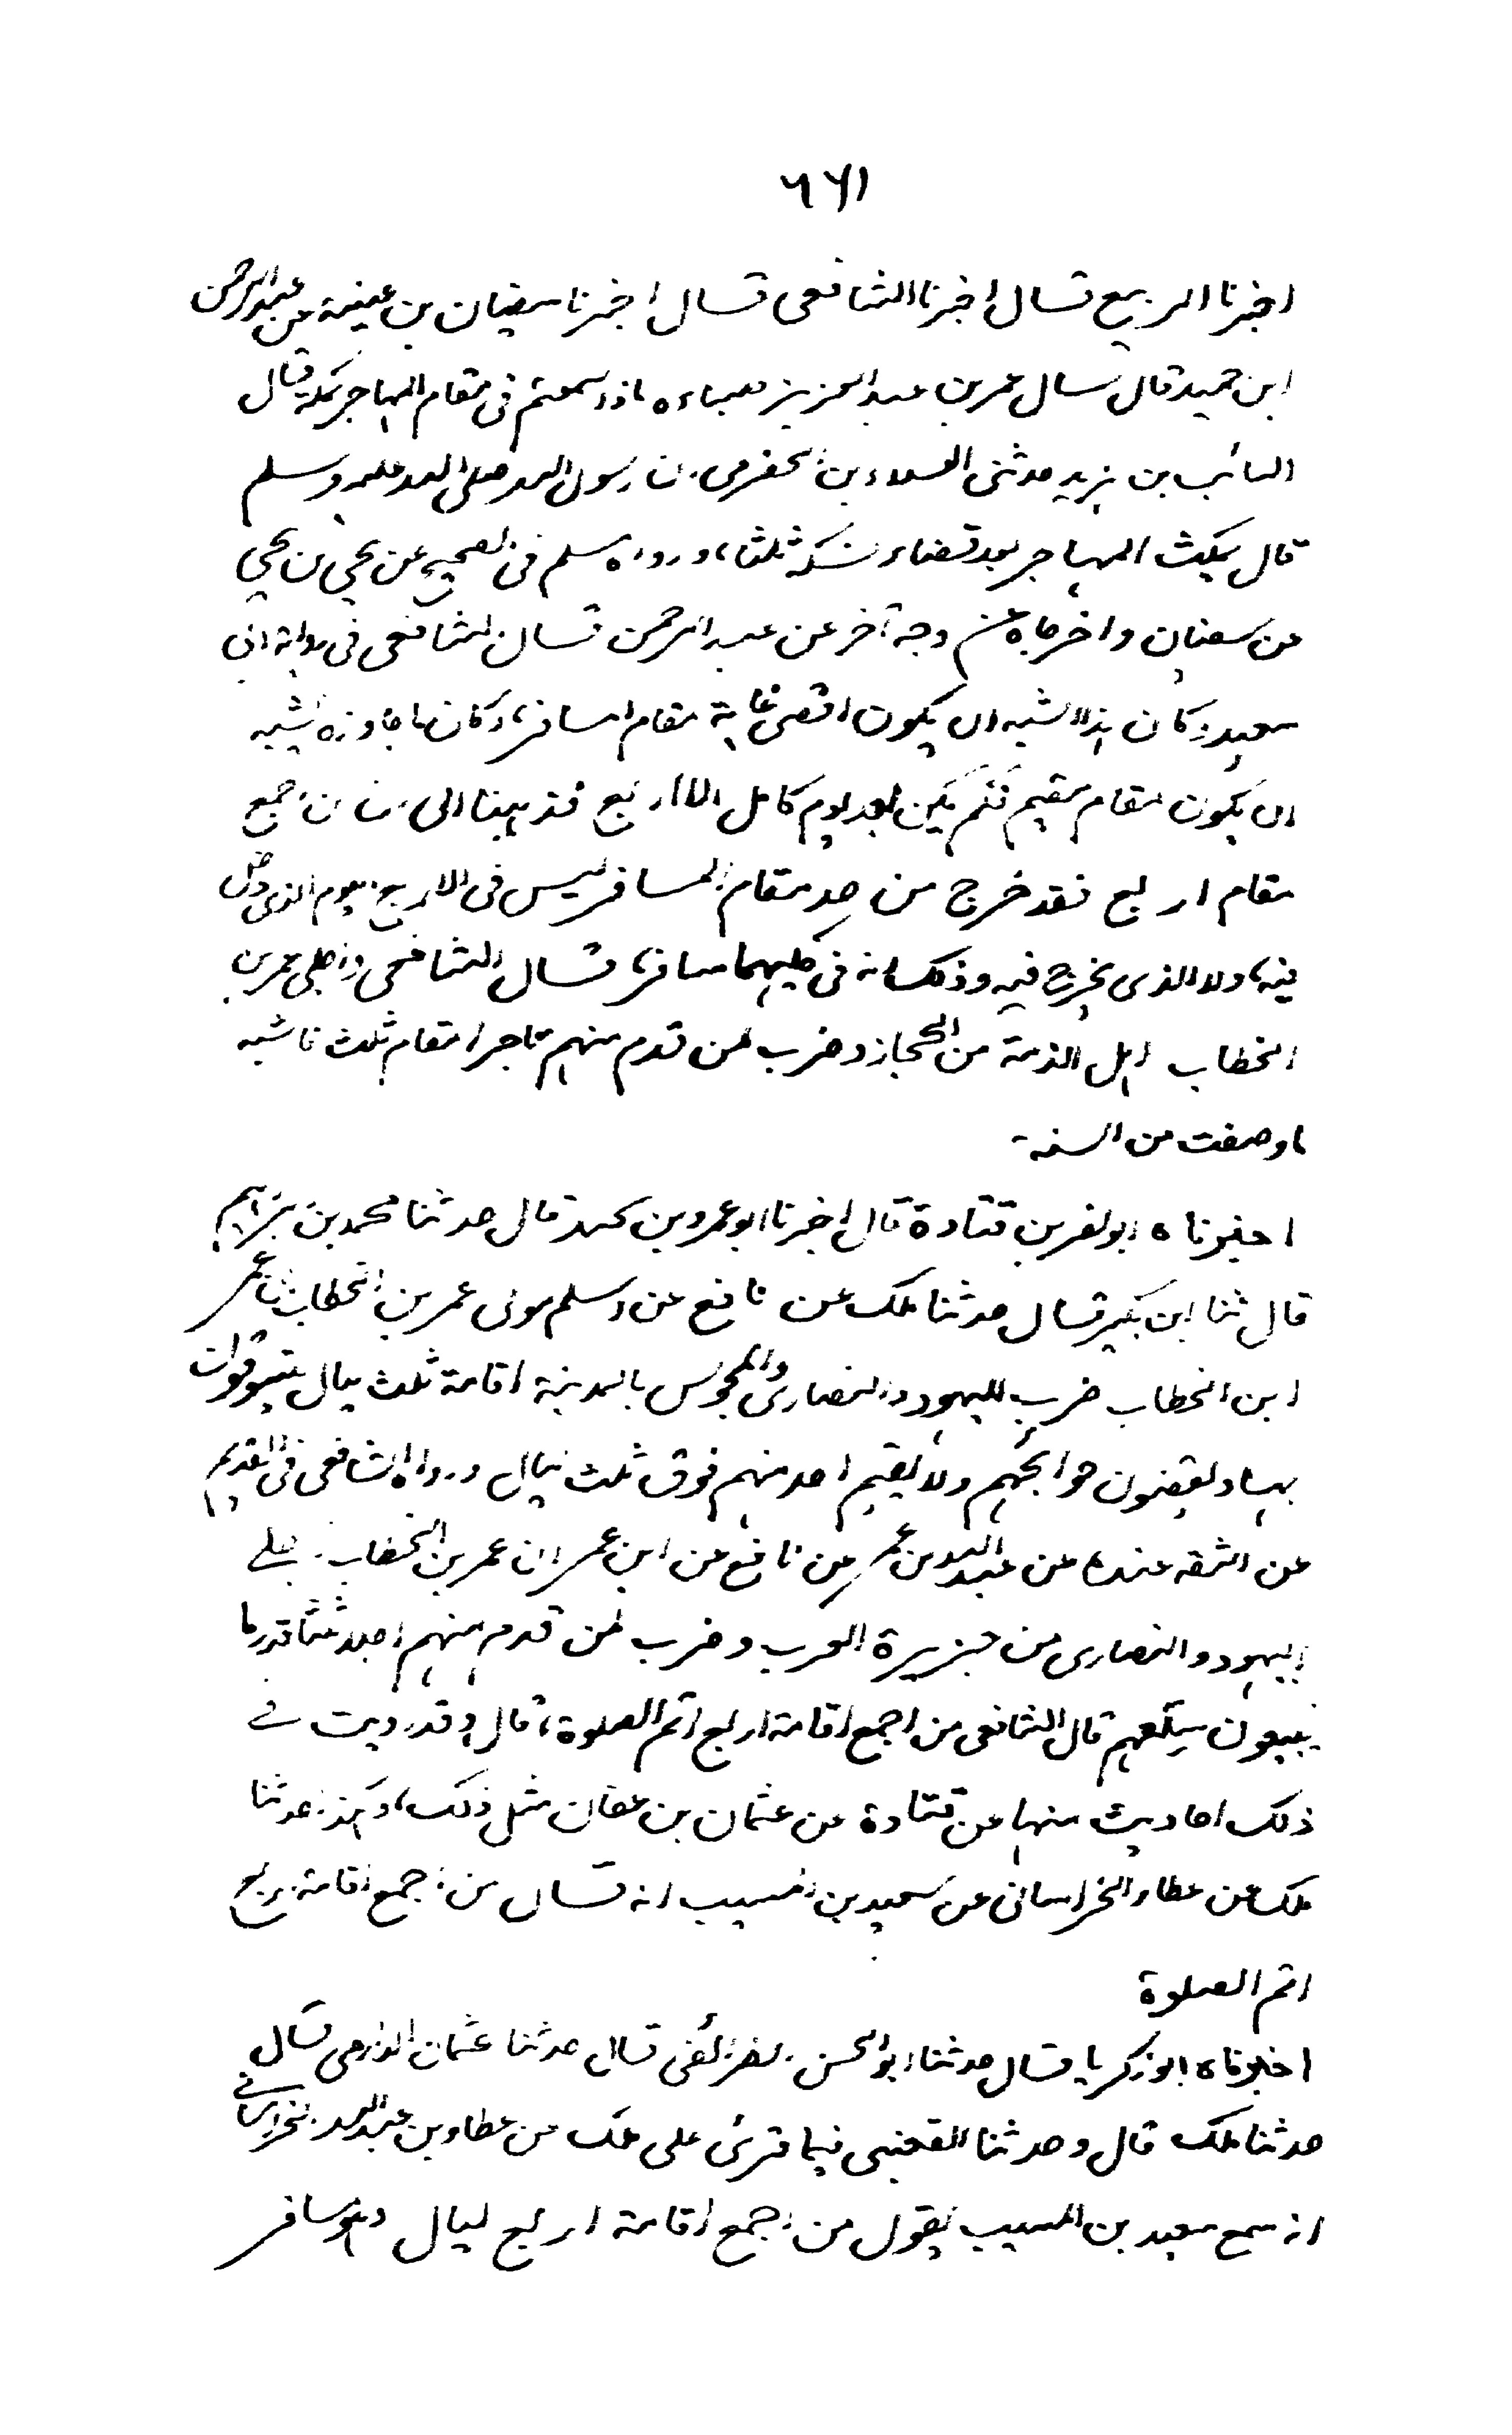 ٦٦١
اخبرنا الربيع قال اخبرنا الشافعى قال اخبرنا سفيان بن عيينة عن عبد الرحمن
ابن حميد قال سال عمر بن عبد العزيز جلساءه ماذا سمعتم فى مقام المهاجر بمكة قال
السائب بن يزيد حدثنى العلاء بن الحضرمى ان رسول الله صلى الله عليه وسلم
قال يمكث المهاجر بعد قضاء نسكه ثلثا، ورواه مسلم فى الصحيح عن يحيى بن يحيى
عن سفيان واخرجاه من وجه آخر عن عبد الرحمن قال الشافعى فى رواية ابى
سعيد وكان هذا اشبه ان يكون اقصى غاية مقام المسافر، وكان ما جاوزه اشبه
ان يكون مقام مقيم فلم يكن بعد يوم كامل الا اربع فذهبنا الى ان من اجمع
مقام اربع فقد خرج من حد مقام المسافر ليس فى الاربع اليوم الذى دخل
فيه، ولا الذى يخرج فيه وذلك انه فى كليهما مسافر، قال الشافعى واجلى عمر بن
الخطاب اهل الذمة من الحجاز وضرب لمن قدم منهم تاجرا مقام ثلث فاشبه
ما وصفت من السنة
اخبرناه ابو نصر بن قتادة قال اخبرنا ابو عمرو بن قال حدثنا محمد بن ابراهيم
قال ثنا ابن بكير قال حدثنا ملك عن نافع عن اسلم مولى عمر بن الخطاب ان عمر
ابن الخطاب ضرب لليهود والنصارى والمجوس بالمدينة اقامة ثلث ليال يتسوقون
بها ويقضون حوائجهم ولا يقيم احد منهم فوق ثلث ليال ورواه الشافعى فى القديم
عن الثقه عنده عن عبيد الله بن عمر عن نافع عن ابن عمر ان عمر بن الخطاب اجلى
اليهود والنصارى من جزيرة العرب وضرب لمن قدم منهم اجلا ثلثا قدر ما
يبيعون سلعهم قال الشافعى من اجمع اقامة اربع اتم الصلوة، قال وقد رويت فى
ذلك احاديث منها عن قتادة عن عثمان بن عفان مثل ذلك، وبهذا حدثنا
ملك عن عطاء الخراسانى عن سعيد بن المسيب انه قال من اجمع اقامة اربع
اتم الصلوة
اخبرناه ابو زكريا قال حدثنا ابو الحسن الطرائفى قال حدثنا عثمان الدارمى قال
حدثنا ملك قال وحدثنا القعنبى فيما قرئ على ملك عن عطاء بن عبد الله الخراسانى
انه سمع سعيد بن المسيب يقول من اجمع اقامة اربع ليال وهو مسافر